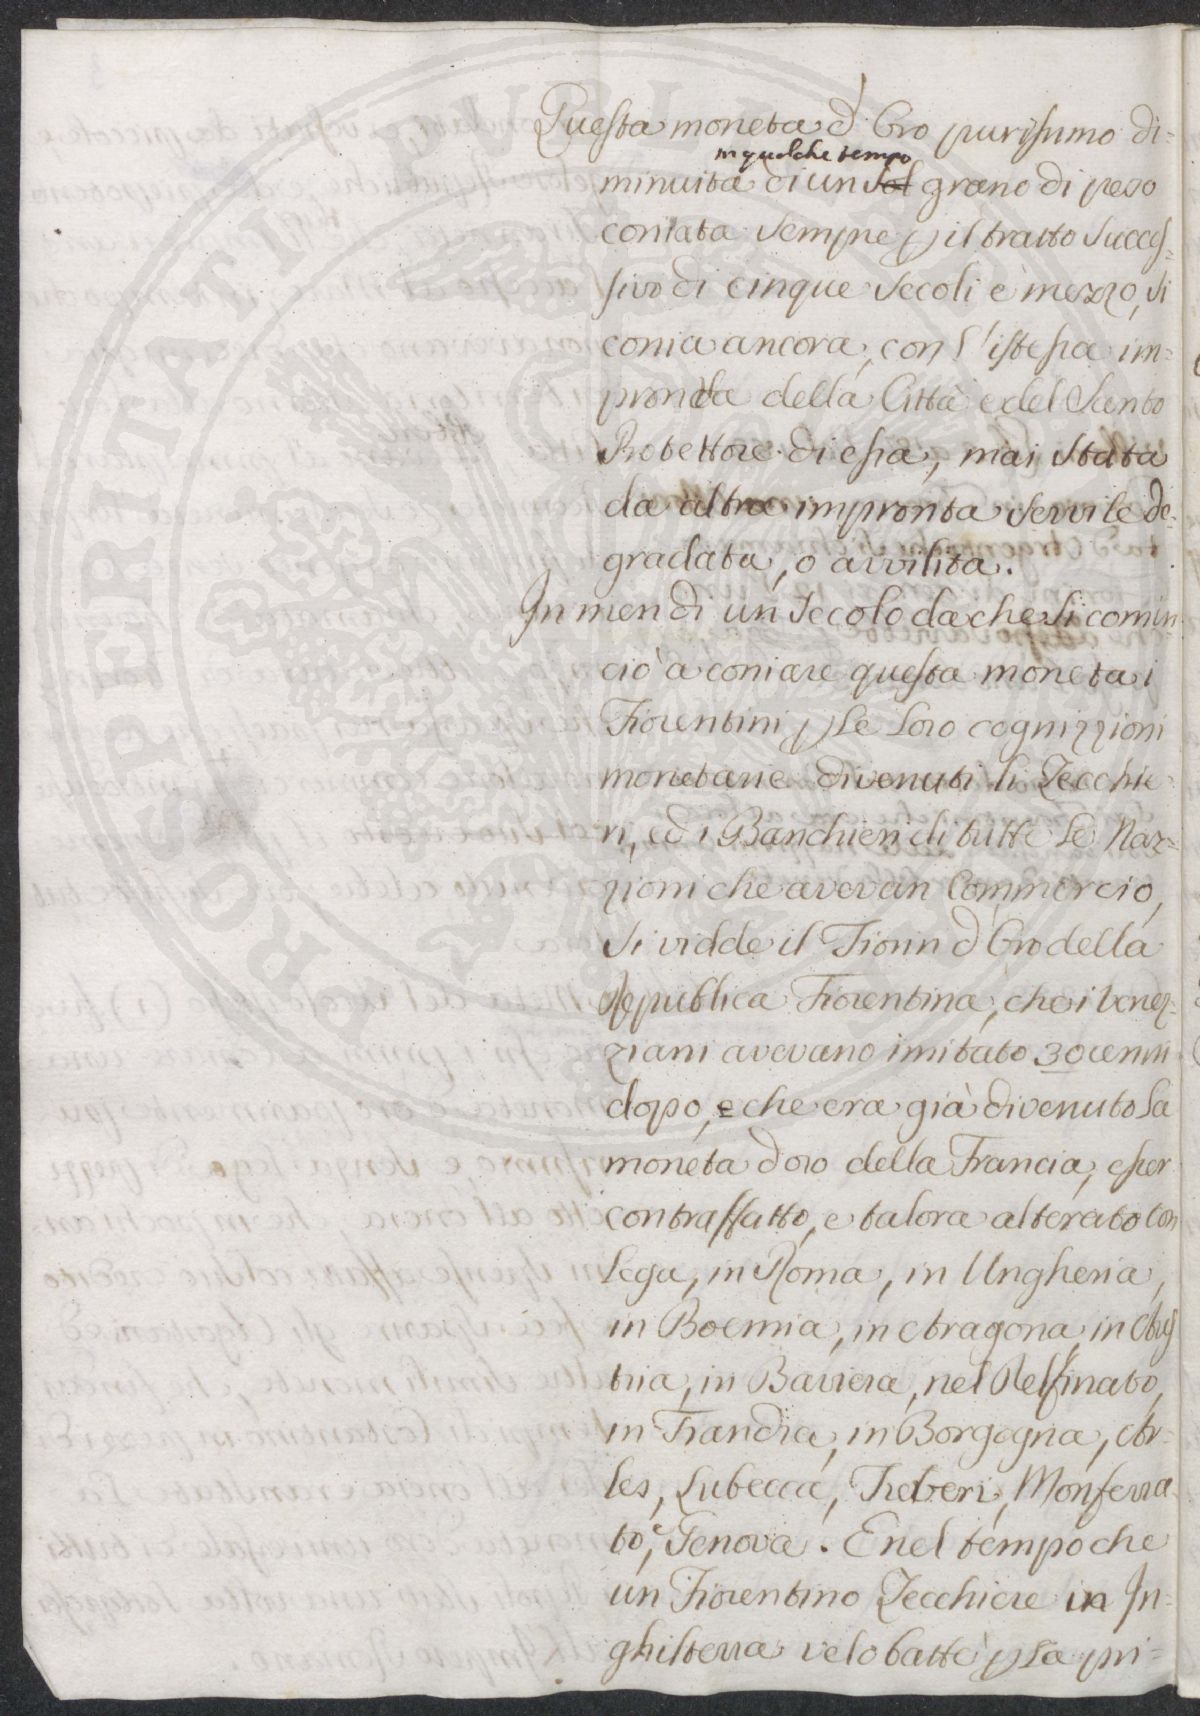 Questa moneta d'Oro purissimo di=
in qualche tempo
minuita di un sol grano di peso
coniata sempre p il tratto succes=
sivo di cinque secoli e mezzo, si
conia ancora, con l'istessa im=
pronta della Città e del Santo
Protettore di essa, mai stata
da altra impronta servile de=
gradata, o avvilita.
In men di un secolo da che si comin=
ciò a coniare questa moneta i
Fiorentini p le loro cognizzioni
monetarie divenuti li Zecchie=
ri, ed i Banchieri di tutte le Naz=
zioni che avevan Commercio,
si vidde il Fiorin d'Oro della
Republica Fiorentina, che i Venez=
ziani avevano imitato 30 anni
dopo, e che era già divenuto la
moneta d'oro della Francia, esser
contraffatto, e talora alterato con
lega, in Roma, in Ungheria,
in Boemia, in Aragona, in Aus
tria, in Baviera, nel Delfinato,
in Fiandra, in Borgogna, Ar=
les, Lubecca, Treveri, Monferra
to, Genova. E nel tempo che
un Fiorentino Zecchiere in In=
ghilterra ve lo batte p la pri=
PROSPERITATI PUBLICAE